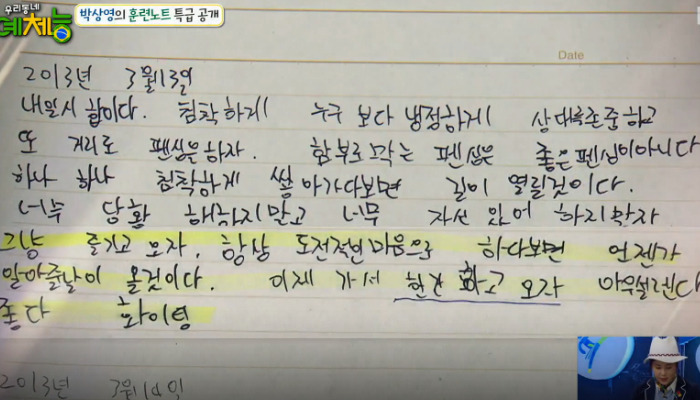 우리동네
예체능
박상영의 훈련노트 특급 공개
Date
2013년 3월13일
내일시합이다. 침착하게 누구 보다 냉정하게 상대를존중하고
또 거리로 펜싱을하자. 함부로막는 펜싱은 좋은펜싱이아니다
하나 하나 침착하게 쌓아가다보면 길이 열릴것이다.
너무 당황 해하지말고 너무 자신 있어 하지말자
그냥 즐기고 오자. 항상 도전적인마음으로 하다보면 언젠가
알아줄날이 올것이다. 이제 가서 한건 하고 오자
좋다 화이팅
2013년 3월14일